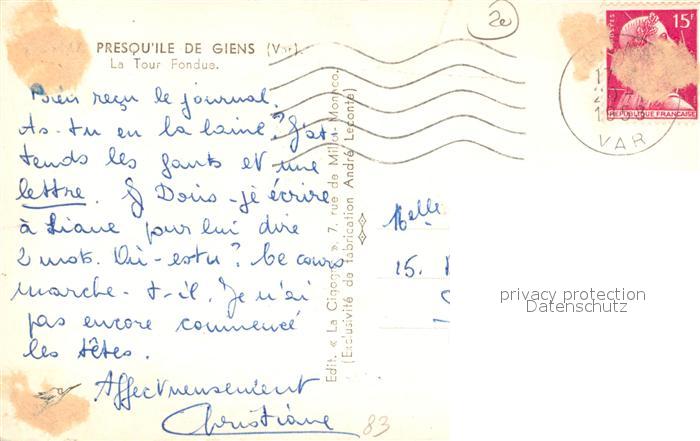 2e
PRESQU'ILE DE GIENS (Var).
La Tour Fondue.
Bien reçu le journal.
As-tu eu la laine? J'at
tends les gants et une
lettre. Dois-je écrire
à Liane pour lui dire
2 mots. Où es-tu? Le cours
marche-t-il. Je n'ai
pas encore commencé
les têtes.
Affectueusement
Christiane
83
Edit. « La Cigogne », 7, rue de Millo - Monaco.
(Exclusivité de fabrication André Leconte)
Melle
15.
POSTES
15F
REPUBLIQUE FRANCAISE
17
VAR
privacy protection
Datenschutz